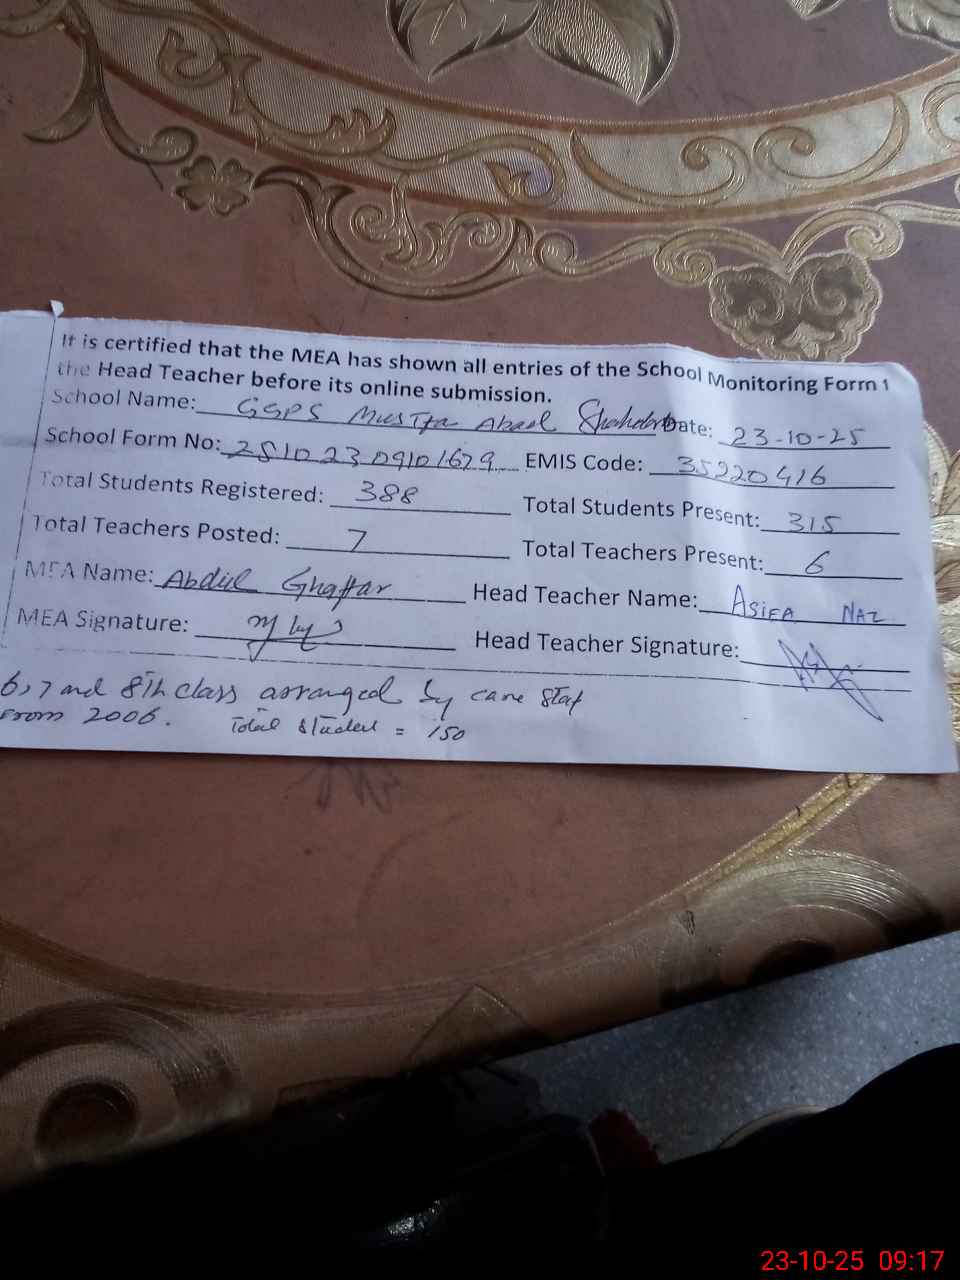 It is certified that the MEA has shown all entries of the School Monitoring Form 1
the Head Teacher before its online submission.
School Name: GGPS Mustfa Abad Date: 23-10-25
School Form No: 251023 09101679 EMIS Code: 35220416
Total Students Registered: 388 Total Students Present: 315
Total Teachers Posted: 7 Total Teachers Present: 6
MEA Name: Abdul Ghaffar Head Teacher Name: ASIFA NAZ
MEA Signature: Head Teacher Signature:
6,7 and 8th class arranged by care staf
From 2006. Total student = 150
23-10-25 09:17